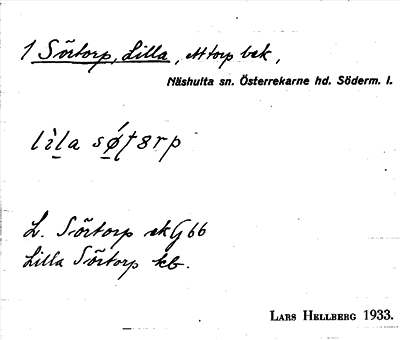 1 Sörtorp, Lilla, att torp bek,
Näshulta sn. Österrekarne hd. Söderm. l.
lìla sǿʈɐrp
L. Sörtorp ek G66
Lilla Sörtorp kb.
LARS HELLBERG 1933.